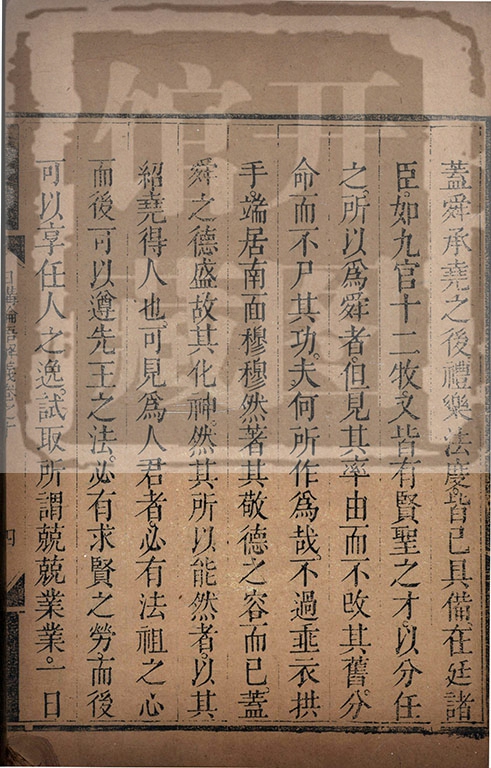 蓋舜承堯之後禮樂法度。皆已具備。在廷諸
臣。如九官十二牧。又皆有賢聖之才。以分任
之。所以爲舜者。但見其率由而不改其舊。分
命而不尸其功。夫何所作爲哉。不過垂衣拱
手。端居南面穆穆然著其敬德之容而已。蓋
舜之德盛故其化神。然其所以能然者。以其
紹堯得人也。可見爲人君者。必有法祖之心
而後可以遵先王之法。必有求賢之勞而後
可以享任人之逸。試取所謂兢兢業業。一日
四